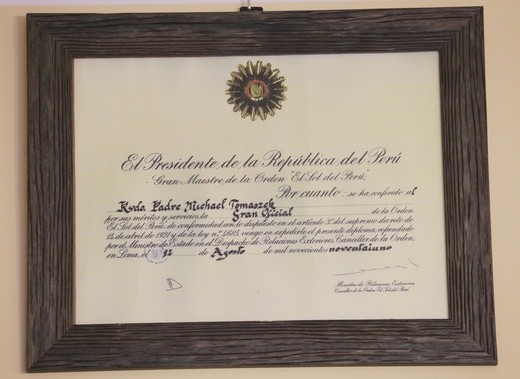 El Presidente de la República del Perú
Gran Maestro de la Orden "El Sol del Perú,"
Por cuanto: se ha conferido al
Rvdo. Padre Michael Tomaszek
por sus méritos y servicios, la Gran Oficial de la Orden
El Sol del Perú, de conformidad con lo dispuesto en el artículo 3º del supremo decreto de
14 de abril de 1921 y de la ley nº 4685, vengo en expedirle el presente diploma, refrendado
por el Ministro de Estado en el Despacho de Relaciones Exteriores, Canciller de la Orden,
en Lima, el 12 de Agosto de mil novecientos noventaiuno
Ministro de Relaciones Exteriores
Canciller de la Orden El Sol del Perú